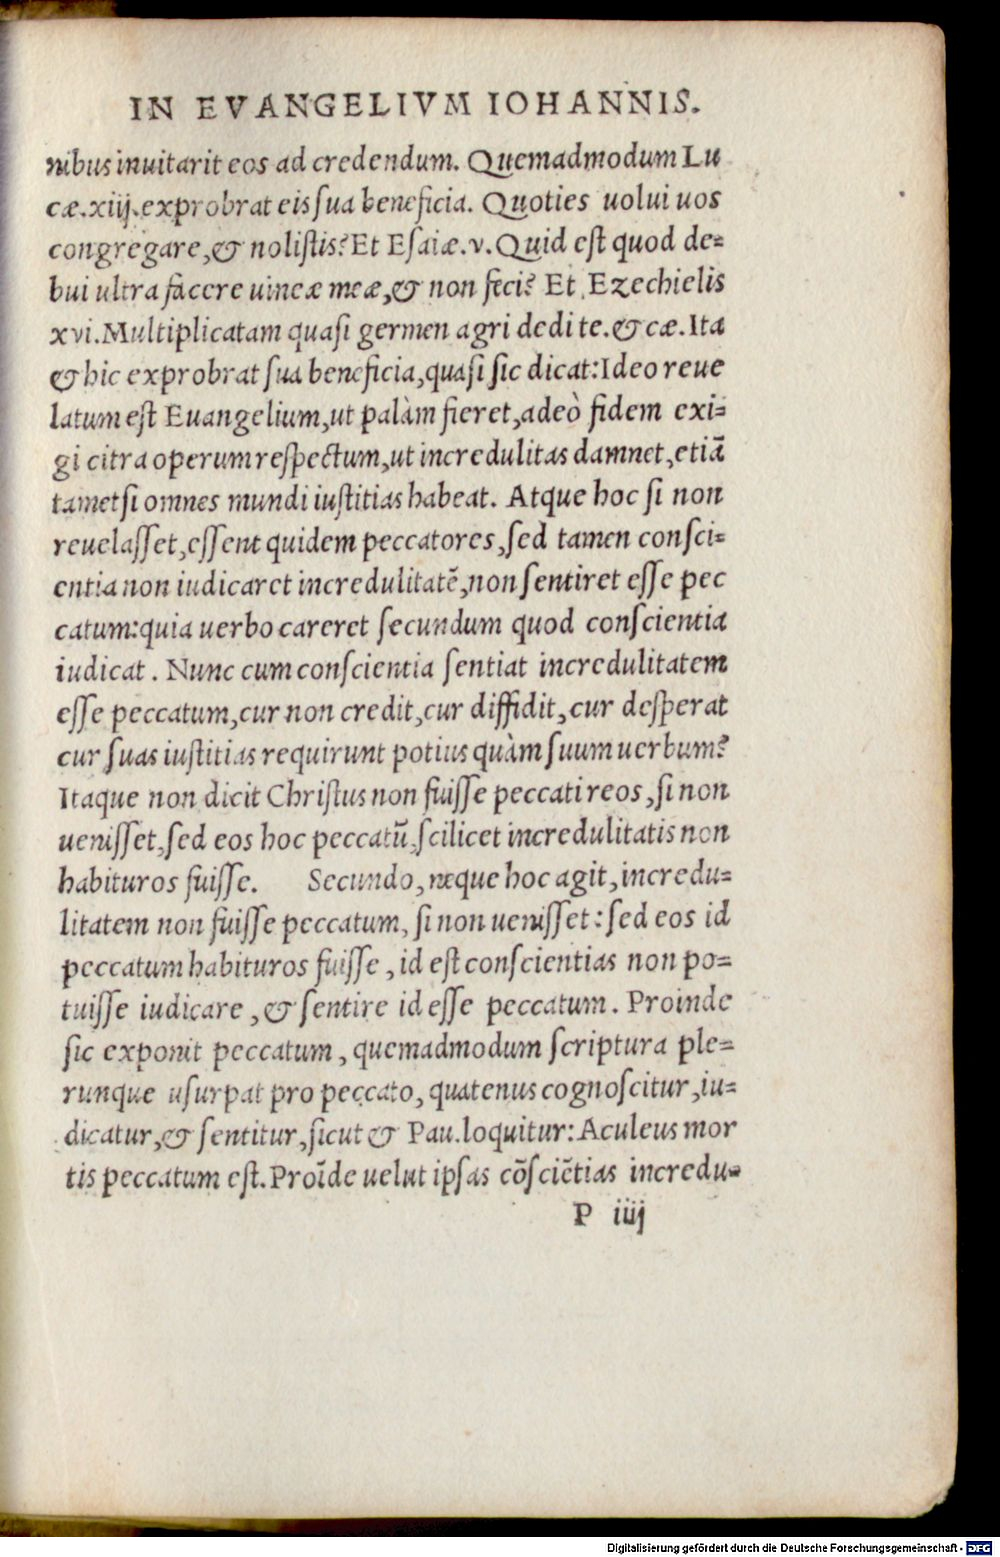 IN EVANGELIVM IOHANNIS.
nibus inuitarit eos ad credendum. Quemadmodum Lu
cæ.xiij.exprobrat eis sua beneficia. Quoties uolui uos
congregare,& nolistis? Et Esaiæ.v.Quid est quod de=
bui ultra facere uineæ meæ,& non feci? Et Ezechielis
xvi.Multiplicatam quasi germen agri dedi te.&cæ.Ita
& hic exprobrat sua beneficia,quasi sic dicat:Ideo reue
latum est Euangelium,ut palàm fieret,adeò fidem exi=
gi citra operum respectum,ut incredulitas damnet,etiã
tametsi omnes mundi iustitias habeat. Atque hoc si non
reuelasset,essent quidem peccatores,sed tamen consci=
entia non iudicaret incredulitatẽ,non sentiret esse pec
catum:quia uerbo careret secundum quod conscientia
iudicat. Nunc cum conscientia sentiat incredulitatem
esse peccatum,cur non credit,cur diffidit,cur desperat
cur suas iustitias requirunt potius quàm suum uerbum?
Itaque non dicit Christus non fuisse peccati reos,si non
uenisset,sed eos hoc peccatũ,scilicet incredulitatis non
habituros fuisse. Secundo,neque hoc agit,incredu=
litatem non fuisse peccatum, si non uenisset:sed eos id
peccatum habituros fuisse,id est conscientias non po=
tuisse iudicare,& sentire id esse peccatum. Proinde
sic exponit peccatum, quemadmodum scriptura ple=
runque usurpat pro peccato, quatenus cognoscitur,iu=
dicatur,& sentitur,sicut & Pau.loquitur:Aculeus mor
tis peccatum est.Proĩde uelut ipsas cõsciẽtias incredu=
P iiij
Digitalisierung gefördert durch die Deutsche Forschungsgemeinschaft - DFG